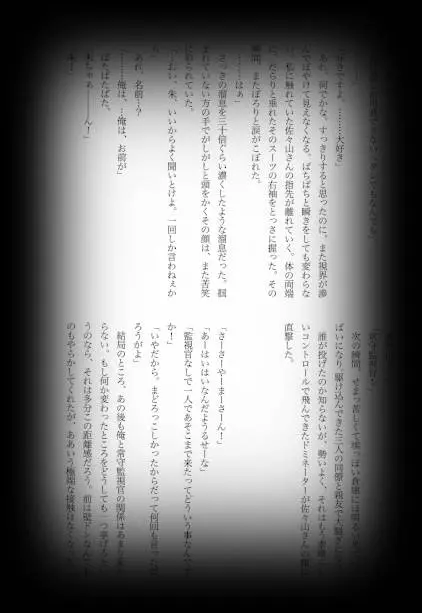 好きですよ。………大好き」
あれ、何でかな。すっきりすると思ったのに、また視界が滲
んでぼやけて見えなくなる。ぱちぱちと瞬きをしても変わらな
私に触れていた佐々山さんの指先が離れていく。体の両端
に、だらりと垂れたそのスーツの右袖をとっさに握った。その
瞬間、またぽろりと涙がこぼれた。
「………はぁ」
さっきの溜息を三十倍ぐらい濃くしたような溜息だった。掴
まれていない方の手でがしがしと頭をかくその顔は、また苦笑
に彩られていた。
「おい、朱、いいからよく聞いとけよ。一回しか言わねぇか
ら」
あれ、名前…？
「………俺は、…俺は、お前が」
ばたばたばた。
次の瞬間、せまっ苦しくて埃っぽい倉庫には明るい
ぱいになり、駆け込んできた三人の同僚と親友で大騒ぎ
誰が投げたのか知らないが、勢いよく、それはもう素晴
いコントロールで飛んできたドミネーターが佐々山さんの顔に
直撃した。
「さーさーやーまーさーん！」
「あーはいはいなんだようるせーな」
「監視官なしで一人であそこまで来たってどういう事なんです
か！」
「いやだから、まどろっこしかったからだって何回も言った
ろうがよ」
結局のところ、あの後も俺と常守監視官の関係はあま
らない。もし何か変わったところをどうしても一つ挙げろと
うのなら、それは多分この距離感だろう。前は壁ドンなん
のもやらかしてくれたが、ああいう極端な接触はなくなった